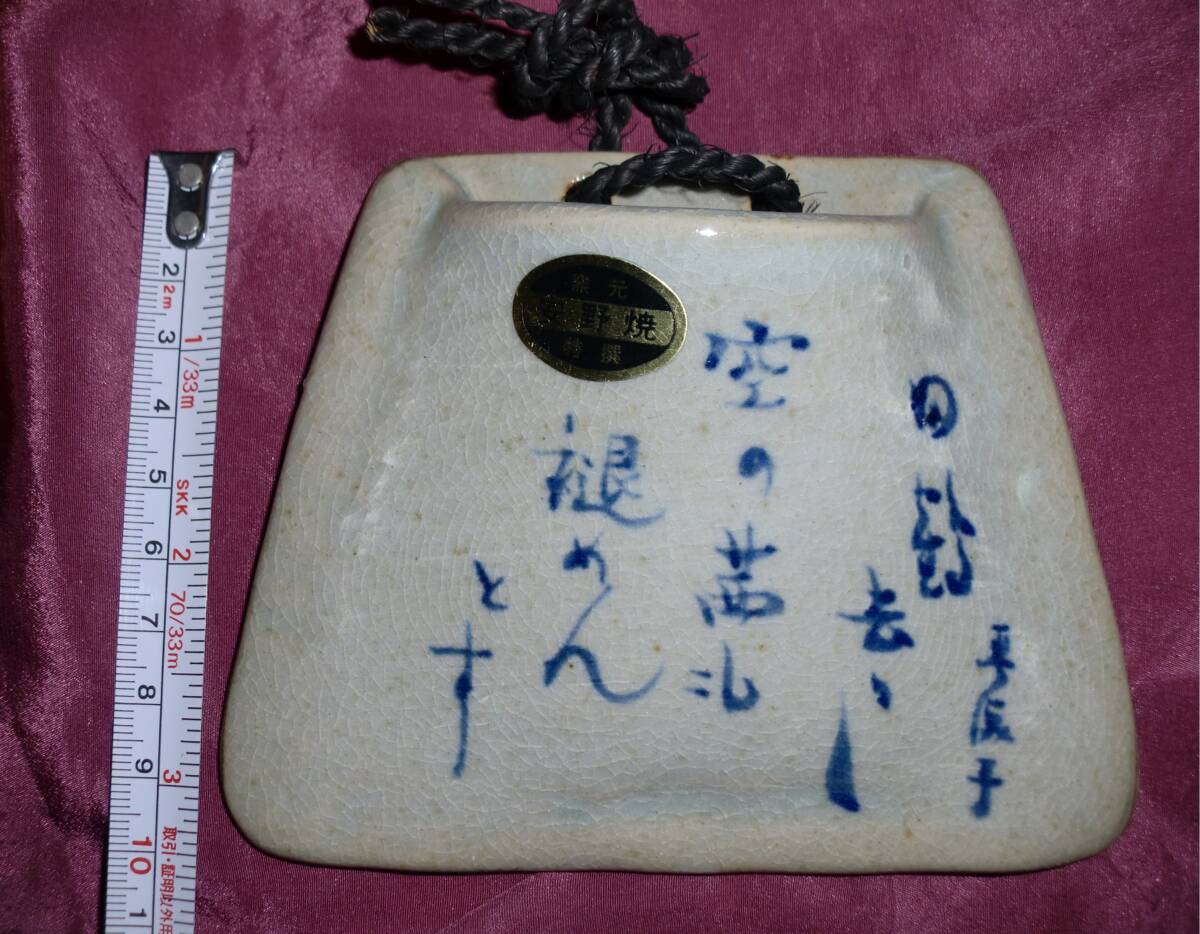 田鶴
去りし
空の茜は
褪めん
とす
子
窯元
野焼
特撰
2 3 4 5 6 7 8 9 10 1
2m
1 /33m SKK 2 70/33m 3 取引・証明以外用